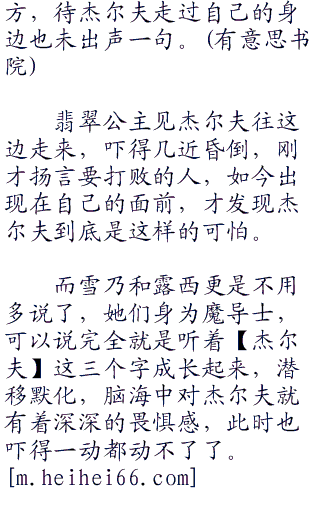 方，待杰尔夫走过自己的身
边也未出声一句。(有意思书
院)
翡翠公主见杰尔夫往这
边走来，吓得几近昏倒，刚
才扬言要打败的人，如今出
现在自己的面前，才发现杰
尔夫到底是这样的可怕。
而雪乃和露西更是不用
多说了，她们身为魔导士，
可以说完全就是听着【杰尔
夫】这三个字成长起来，潜
移默化，脑海中对杰尔夫就
有着深深的畏惧感，此时也
吓得一动都动不了了。
[m.heihei66.com]